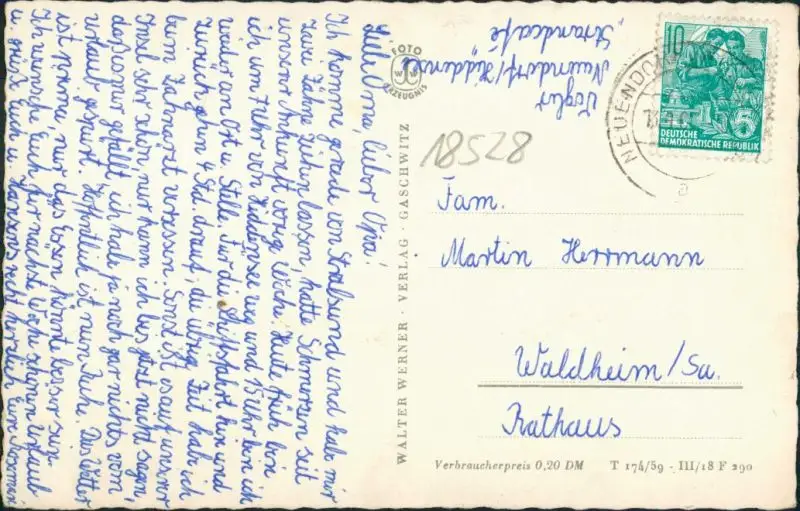 Liebe Oma, lieber Opa!
Ich komme gerade von Stralsund und habe mir
zwei Zähne ziehen lassen, hatte Schmerzen seit
unserer Ankunft vorige Woche. Heute früh bin
ich um 7 Uhr von Hiddensee weg und 15 Uhr bin ich
wieder an Ort u. Stelle. Für die Schiffsfahrt hin und
zurück gehn 4 Std. drauf, die übrige Zeit hab ich
beim Zahnarzt gesessen. Sonst ist es auf unserer
Insel sehr schön, nur kann ich bis jetzt nicht sagen,
daß es mir gefällt, ich hab ja noch gar nichts vom
Urlaub gespürt. Hoffentlich ist nun Ruhe. Das Wetter
ist prima, nur das Essen könnt besser sein.
Ich wünsche Euch für nächste Woche schönen Urlaub
u. grüße Euch u. recht herzlich Eure
FOTO
W W
ERZEUGNIS
WALTER WERNER · VERLAG · GASCHWITZ
Neuendorf/Hiddensee
"Strandcafé"
NEUENDO
a
10
DEUTSCHE
DEMOKRATISCHE REPUBLIK
18528
Fam.
Martin Herrmann
Waldheim/Sa.
Rathaus
Verbraucherpreis 0,20 DM T 174/59 - III/18 F 290